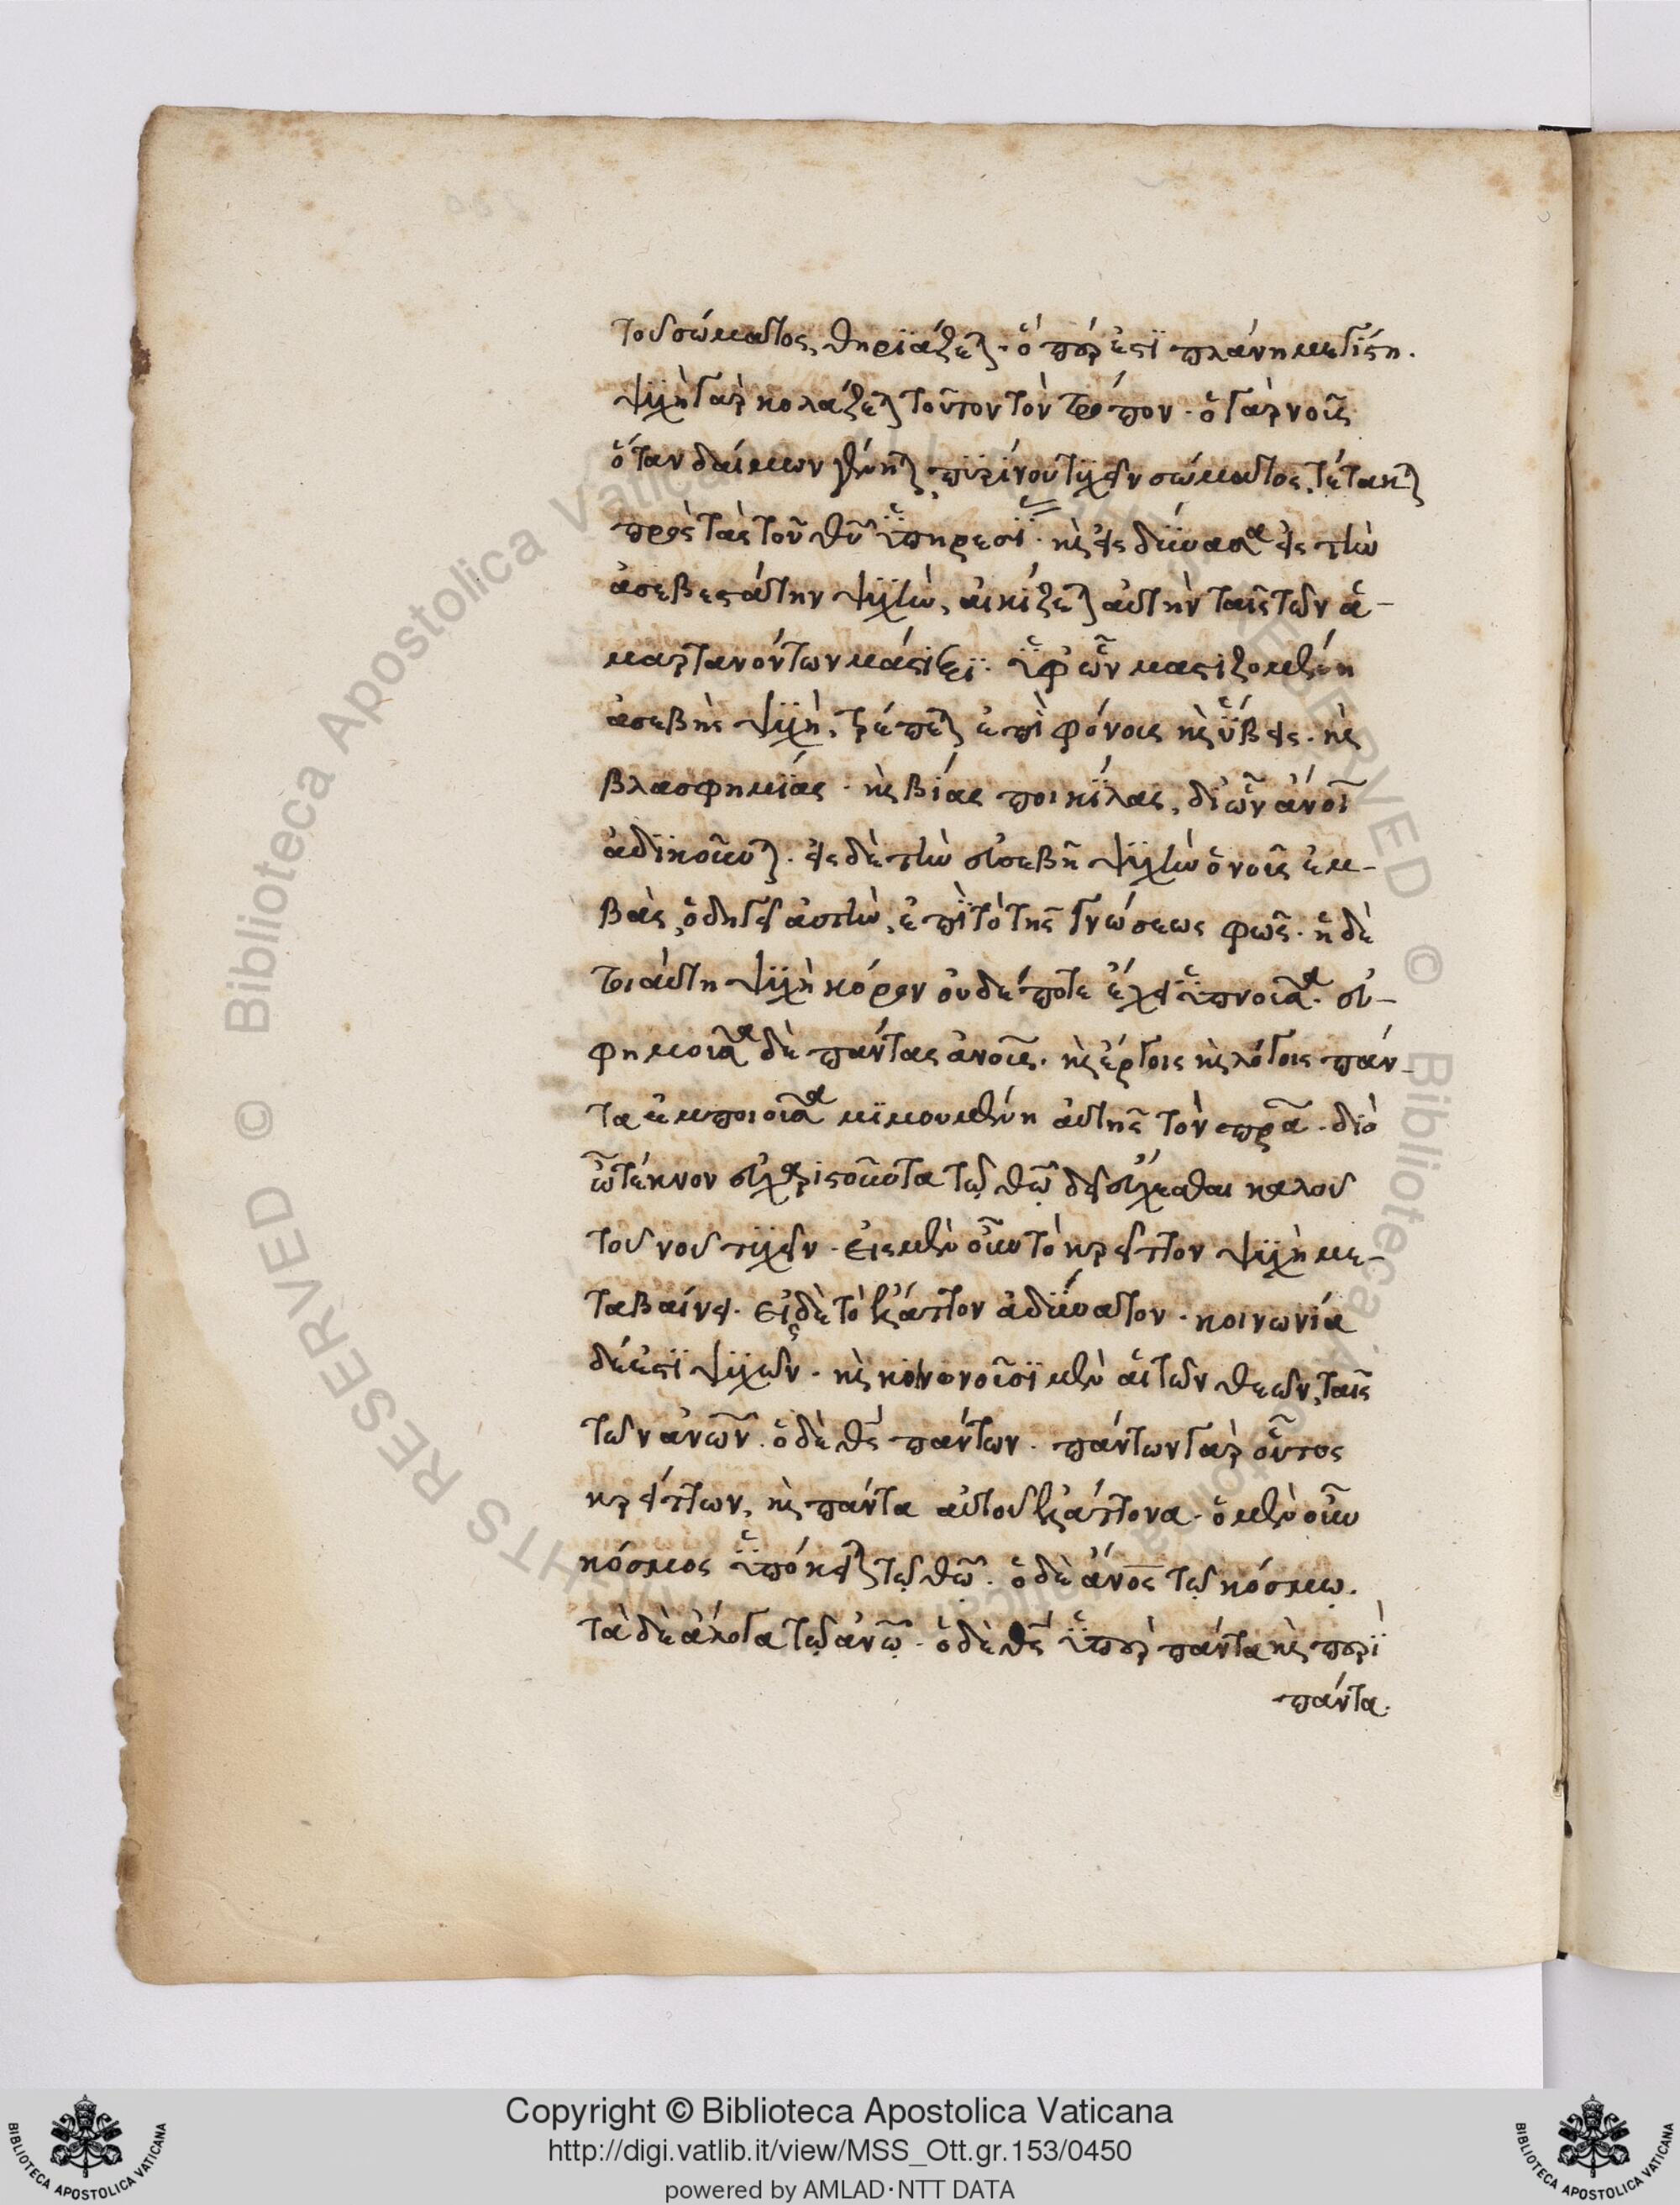 τοῦ σώματος θηριάζεται· ὅπερ ἐστὶ πλάνη μεγίστη.
ψυχὴ γὰρ κολάζεται τοῦτον τὸν τρόπον· ὁ γὰρ νοῦς
ὅταν δαίμων γένηται, πυρίνου τυχεῖν σώματος, τέτακται
πρὸς τὰς τοῦ θυ ὑπηρεσίας· καὶ εἰσδύσασα εἰς τὴν
ἀσεβεστάτην ψυχὴν, αἰκίζεται αὐτὴν ταῖς τῶν ἁ-
μαρτανόντων μάστιξι· ὑφ' ὧν μαστιζομένη
ἀσεβὴς ψυχὴ, τρέπεται ἐπὶ φόνοις καὶ ὕβρεις· καὶ
βλασφημίας· καὶ βίας ποικίλας, δι' ὧν ἄνοι
ἀδικοῦνται· εἰς δὲ τὴν εὐσεβῆ ψυχὴν ὁ νοῦς ἐμ-
βὰς, ὁδηγεῖ αὐτὴν, ἐπὶ τὸ τῆς γνώσεως φῶς· ἡ δὲ
τοιαύτη ψυχὴ κόρον οὐδέποτε ἔχει ὑπνοῦσα· εὐ-
φημοῦσα δὲ πάντας ἀνους· καὶ ἔργοις καὶ λόγοις πάν-
τα ἐμποιοῦσα μιμουμένη αὐτῆς τὸν πρα· διὸ
ὦ τέκνον εὐχαριστοῦντα τῷ θῶ δεῖ εὔχεσθαι καλοῦ
τοῦ νοῦ τυχεῖν· εἰς μὲν οὖν τὸ κρεῖττον ψυχὴ με-
ταβαίνει· εἰς δὲ τὸ ἔλαττον ἀδύνατον· κοινωνία
δέ ἐστι ψυχῶν· καὶ κοινωνοῦσι μὲν αἱ τῶν θεῶν, ταῖς
τῶν ἀνων· ὁ δὲ θς πάντων· πάντων γὰρ οὗτος
κρείττων, καὶ πάντα αὐτοῦ ἐλάττονα· ὁ μὲν οὖν
κόσμος ὑπόκειται τῷ θῶ· ὁ δὲ ἄνος τῷ κόσμῳ.
τὰ δὲ ἄλογα τῷ ἀνω· ὁ δὲ θς ὑπὲρ πάντα καὶ περὶ
πάντα.
Copyright © Biblioteca Apostolica Vaticana
http://digi.vatlib.it/view/MSS_Ott.gr.153/0450
powered by AMLAD·NTT DATA